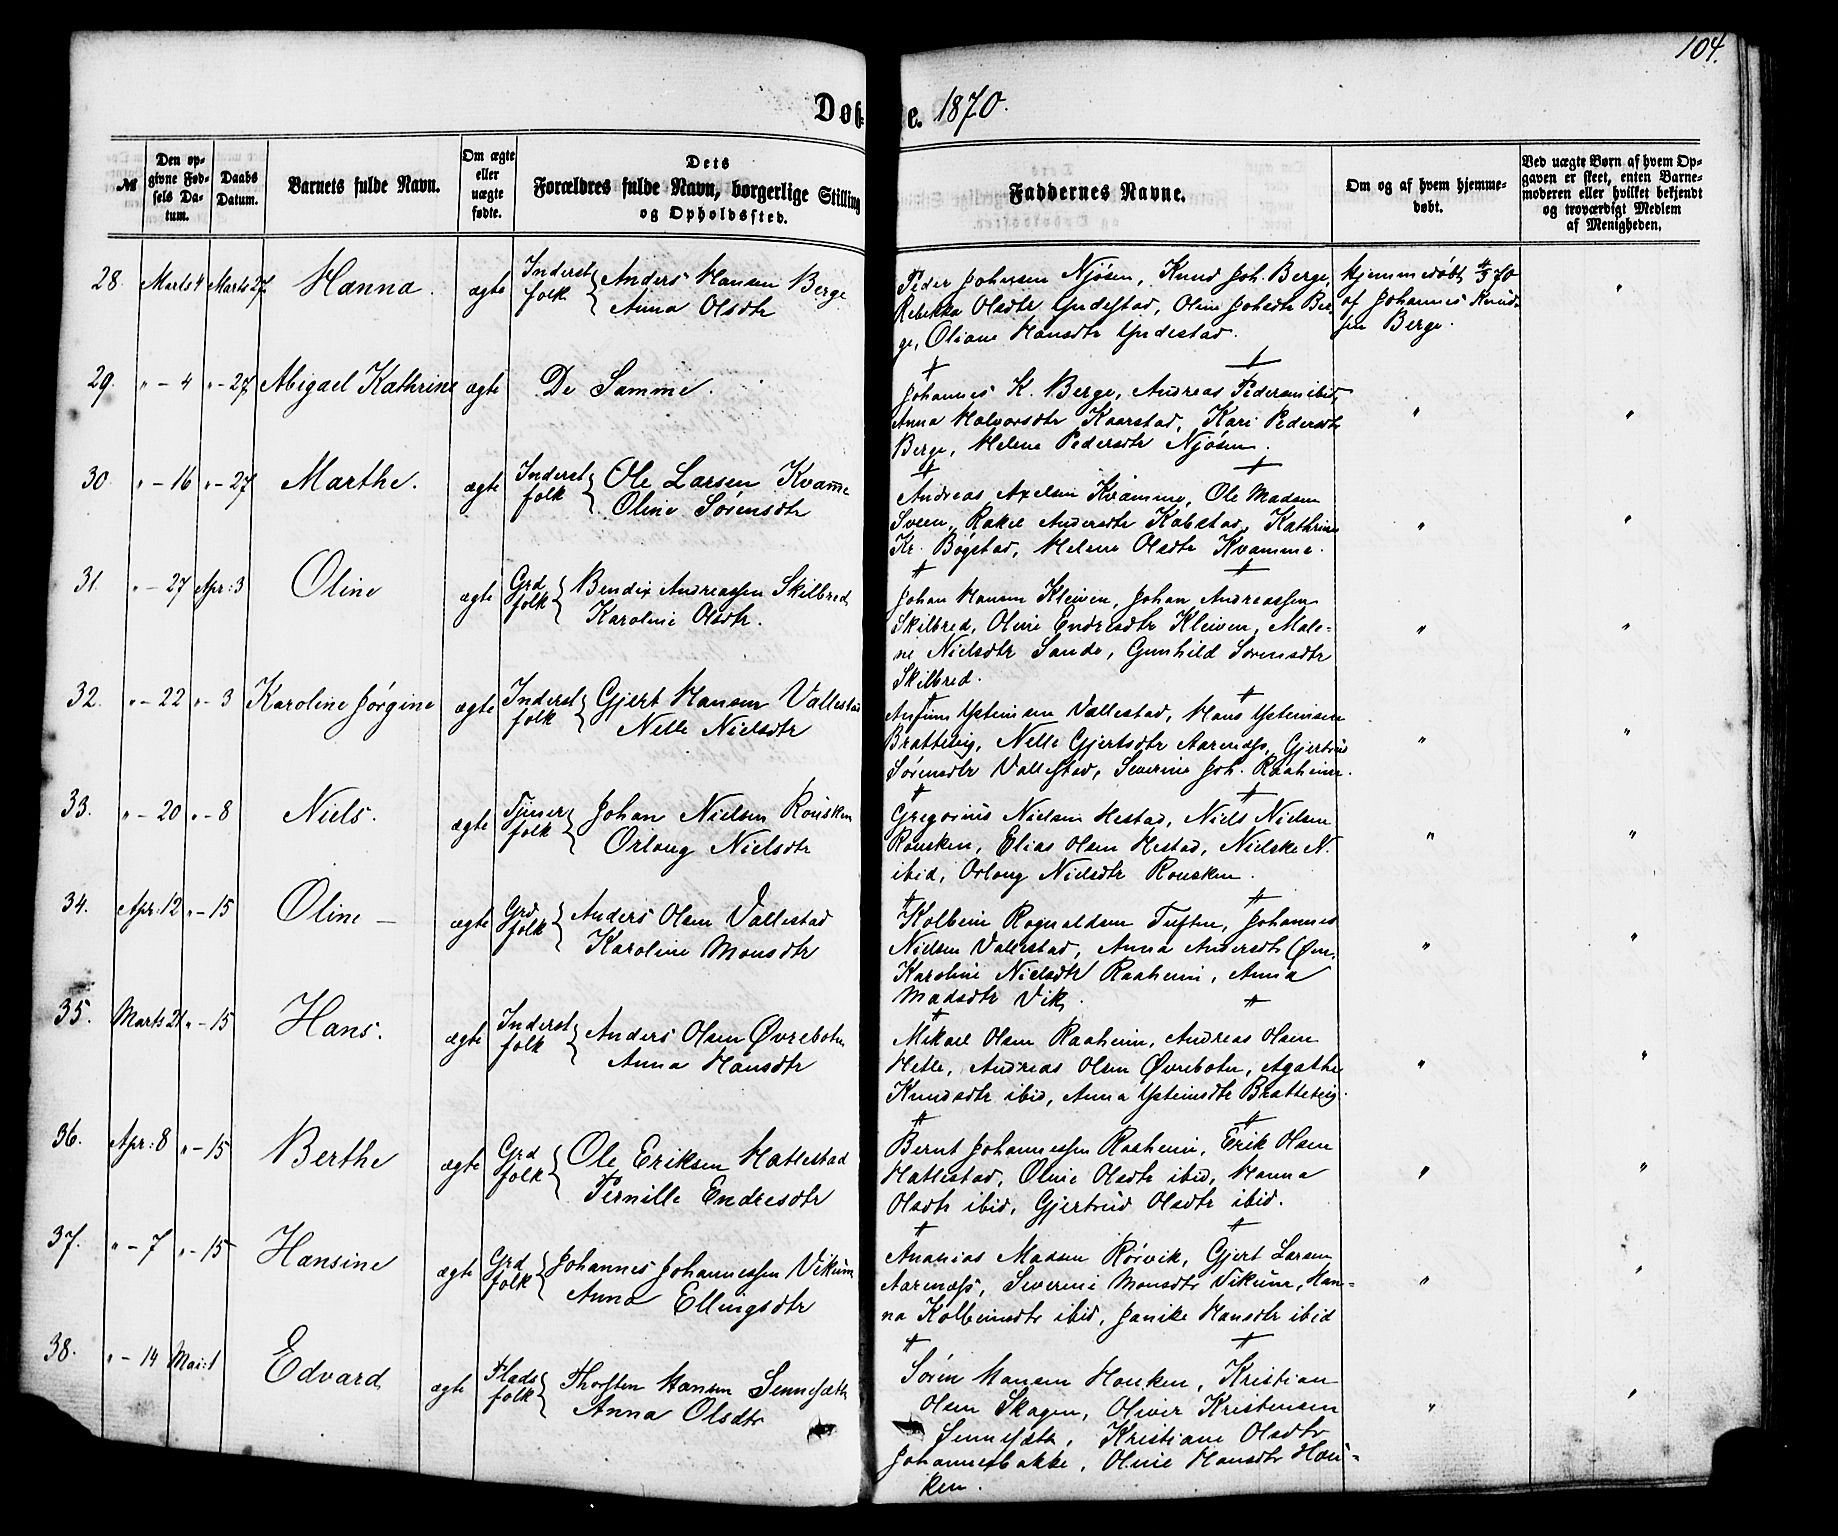 104.
Døb= te. 1870.
№
Den opgivne Fødsels Datum.
Daabs Datum.
Barnets fulde Navn.
Om ægte eller uægte fødte.
Dets Forældres fulde Navn, borgerlige Stilling og Opholdssted.
Faddernes Navne.
Om og af hvem hjemmedøbt.
Ved uægte Børn af hvem Opgaven er skeet, enten Barnemoderen eller hvilket bekjendt og troværdigt Medlem af Menigheden.
28. Marts 4 Marts 27 Hanna. ægte Inderstfolk Anders Hansen Berge
Anna Olsdtr
Peder Johnsen Njøsen, Knud Joh. Berge,
Rebekka Olsdtr Yndestad, Oline Johsdtr Ber
ge, Oliane Hansdtr Yndestad.
hjemmedøbt 4/3 70
af Johannes Knud
sen Berge. "
29. " - 4 " - 27 Abigael Kathrine ægte De Samme.
Johannes K. Berge, Andreas Pedersen ibid,
Anna Halvorsdtr Kaarstad, Kari Pedersdtr
Berge, Helene Pedersdtr Njøsen. " "
30. " - 16 " - 27 Marthe. ægte Inderstfolk Ole Larsen Kvamme
Oline Sørensdtr
Andreas Axelsen Kvamme, Ole Madsen
Sveen, Rakel Andersdtr Kobstad, Kathrine
Kr. Bøgstad, Helene Olsdtr Kvamme. " "
31. " - 27 Apr: 3 Oline ægte Grdfolk Bendix Andreassen Skilbred
Karoline Olsdtr.
Johan Hansen Kleiven, Johan Andreassen
Skilbred, Oline Endresdtr Kleiven, Male-
ne Nielsdtr Sande, Gunhild Sørensdtr
Skilbred. " "
32. " - 22 " - 3 Karoline Jørgine ægte Inderstfolk Gjert Hansen Vallestad
Nelle Nielsdtr
Anfinn Ysteinsen Vallestad, Hans Ysteinsen
Bratteteig, Nelle Gjertsdtr Aarnæss, Gjertrud
Sørensdtr Vallestad, Severine Joh. Raaheim. " "
33. " - 20 " - 8 Niels. ægte Tjenerfolk Johan Nielsen Rousken
Orloug Nielsdtr
Gregorius Nielsen Hestad, Niels Nielsen
Rousken, Elias Olsen Hestad, Nielske N.
ibid, Orloug Nielsdtr Rousken. " "
34. Apr: 12 " - 15 Oline - ægte Grdfolk Anders Olsen Vallestad
Karoline Monsdtr
Kolbein Rognaldsen Tuften, Johannes
Nielsen Vallestad, Anna Andersdtr Øen,
Karoline Nielsdtr Raaheim, Anna
Madsdtr Vik. " "
35. Marts 21 " - 15 Hans. ægte Inderstfolk Anders Olsen Øvreboten
Anna Hansdtr
Mikael Olsen Raaheim, Andreas Olsen
Hetle, Andreas Olsen Øvreboten, Agathe
Knudsdtr ibid, Anna Ysteinsdtr Bratteteig. " "
36. Apr: 8 " - 15 Berthe ægte Grdfolk Ole Eriksen Hatlestad
Pernille Endresdtr
Bernt Johannessen Raaheim, Erik Olsen
Hatlestad, Oline Olsdtr ibid, Hanna
Olsdtr ibid, Gjertrud Olsdtr ibid. " "
37. " - 7 " - 15 Hansine ægte Grdfolk Johannes Johannessen Vikum
Anna Ellingsdtr
Ananias Madsen Rørvik, Gjert Larsen
Aarnæss, Severine Monsdtr Vikum, Han-
na Kolbeinsdtr ibid, Janike Hansdtr ibid " "
38. " - 14 Mai: 1 Edvard ægte Pladsfolk Thorsten Hansen Sennesæth
Anna Olsdtr
Sørin Hansen Houken, Kristian
Olsen Skagen, Oliver Kristensen
Sennesæth, Kristiane Olsdtr
Johannesbakke, Oline Hansdtr Hou-
ken. " "